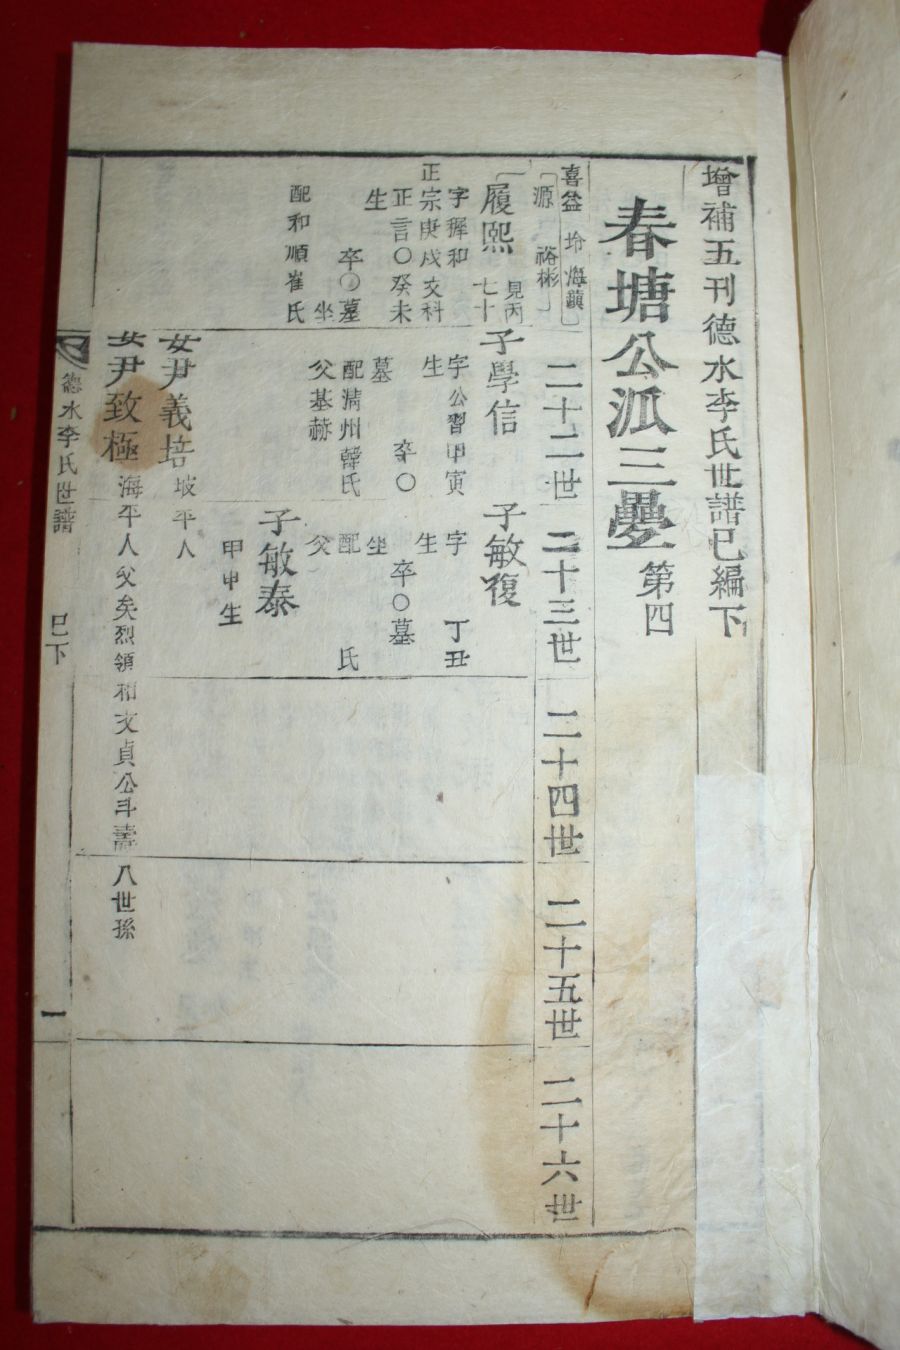 增補五刊德水李氏世譜巳編下
春塘公派三疊第四
喜益
源
坽 海鎭
裕彬
二十二世
二十三世
二十四世
二十五世
二十六世
履熙 見丙
七十
字穉和
正宗庚戌文科
正言○癸未
生
卒○墓
坐
配和順崔氏
子學信
字公習甲寅
生
卒○
墓
配淸州韓氏
父基赫
子敏復
字 丁丑
生
卒○墓
坐
配 氏
父
子敏泰
甲申生
女尹義培坡平人
女尹致極海平人父矣烈領相文貞公斗壽八世孫
德水李氏世譜 巳下 一